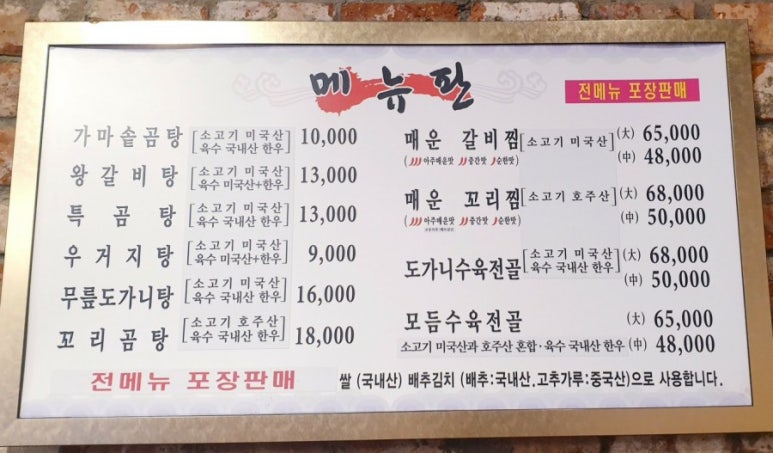 메뉴판
전메뉴 포장판매
가마솥곰탕 [소고기 미국산 육수 국내산 한우] 10,000
왕갈비탕 [소고기 미국산 육수 미국산+한우] 13,000
특곰탕 [소고기 미국산 육수 국내산 한우] 13,000
우거지탕 [소고기 미국산 육수 미국산+한우] 9,000
무릎도가니탕 [소고기 미국산 육수 국내산 한우] 16,000
꼬리곰탕 [소고기 호주산 육수 국내산 한우] 18,000
전메뉴 포장판매
매운 갈비찜 [소고기 미국산] (大) 65,000
(아주매운맛 중간맛 순한맛) (中) 48,000
매운 꼬리찜 [소고기 호주산] (大) 68,000
(아주매운맛 중간맛 순한맛) (中) 50,000
도가니수육전골 [소고기 미국산 육수 국내산 한우] (大) 68,000
(中) 50,000
모듬수육전골 (大) 65,000
소고기 미국산과 호주산 혼합·육수 국내산 한우 (中) 48,000
쌀 (국내산) 배추김치 (배추:국내산,고추가루:중국산)으로 사용합니다.